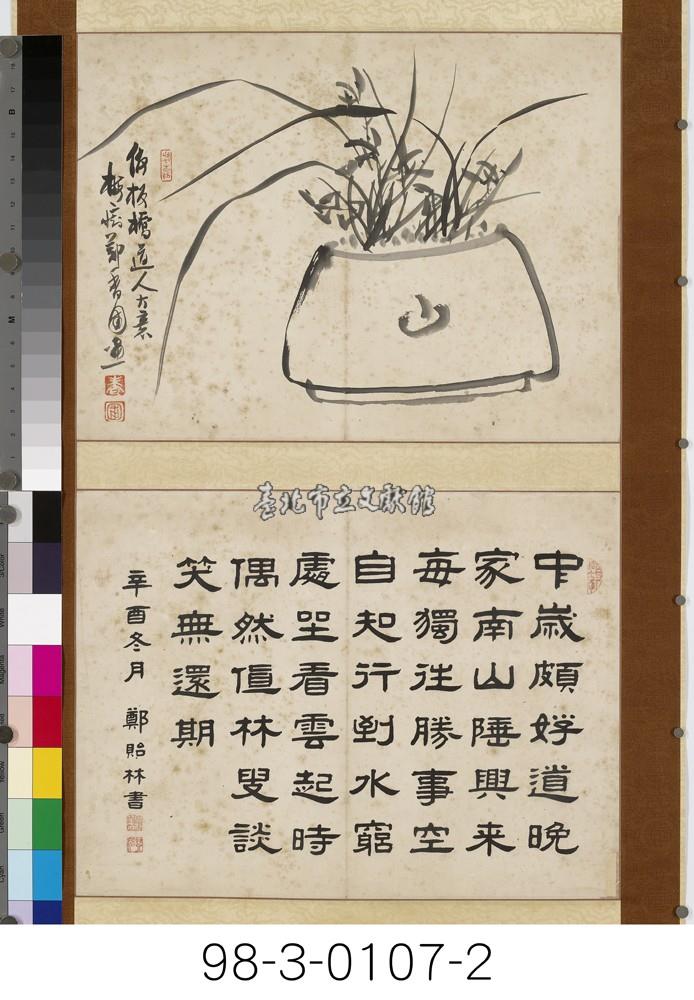 倣板橋道人大意
樹癡鄭香圃畫
臺北市立文獻館
中歲頗好道晚
家南山陲興来
每獨往勝事空
自知行到水窮
處坐看雲起時
偶然值林叟談
笑無還期
辛酉冬月 鄭貽林書
98-3-0107-2